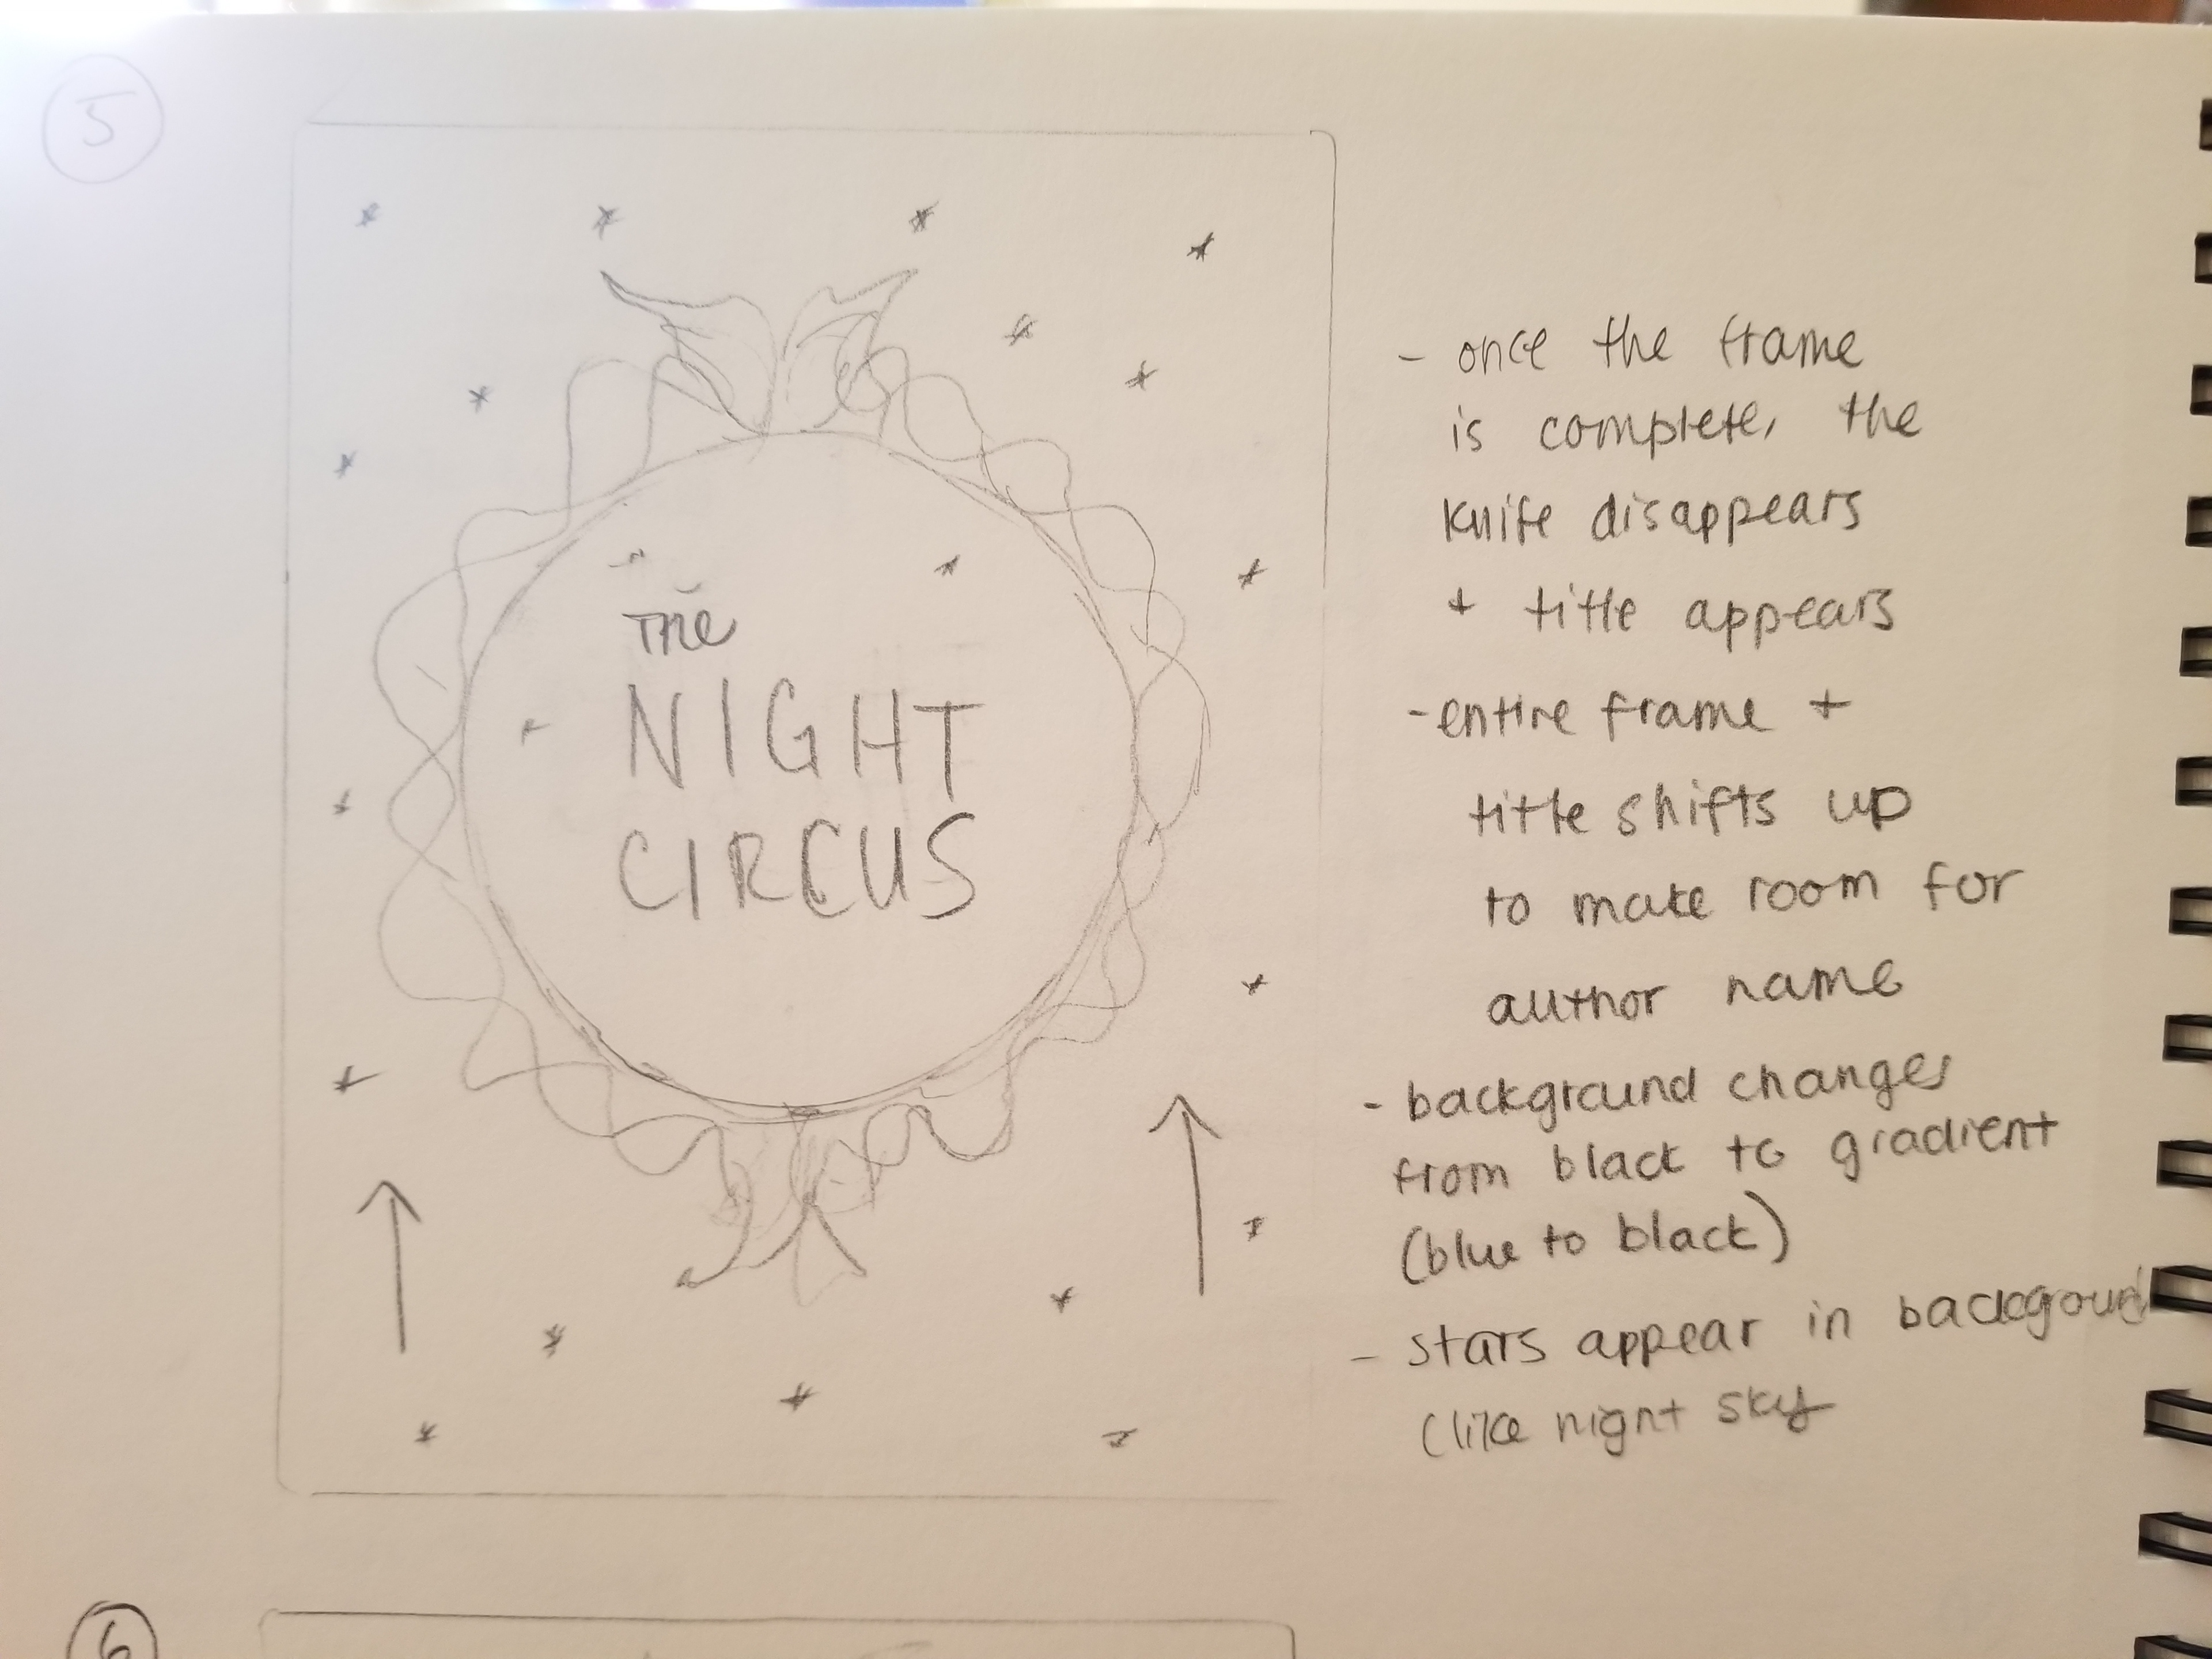 5
The
NIGHT
CIRCUS
- once the frame
is complete, the
knife disappears
+ title appears
- entire frame +
title shifts up
to make room for
author name
- background changes
from black to gradient
(blue to black)
- stars appear in backgound
(like night sky
6